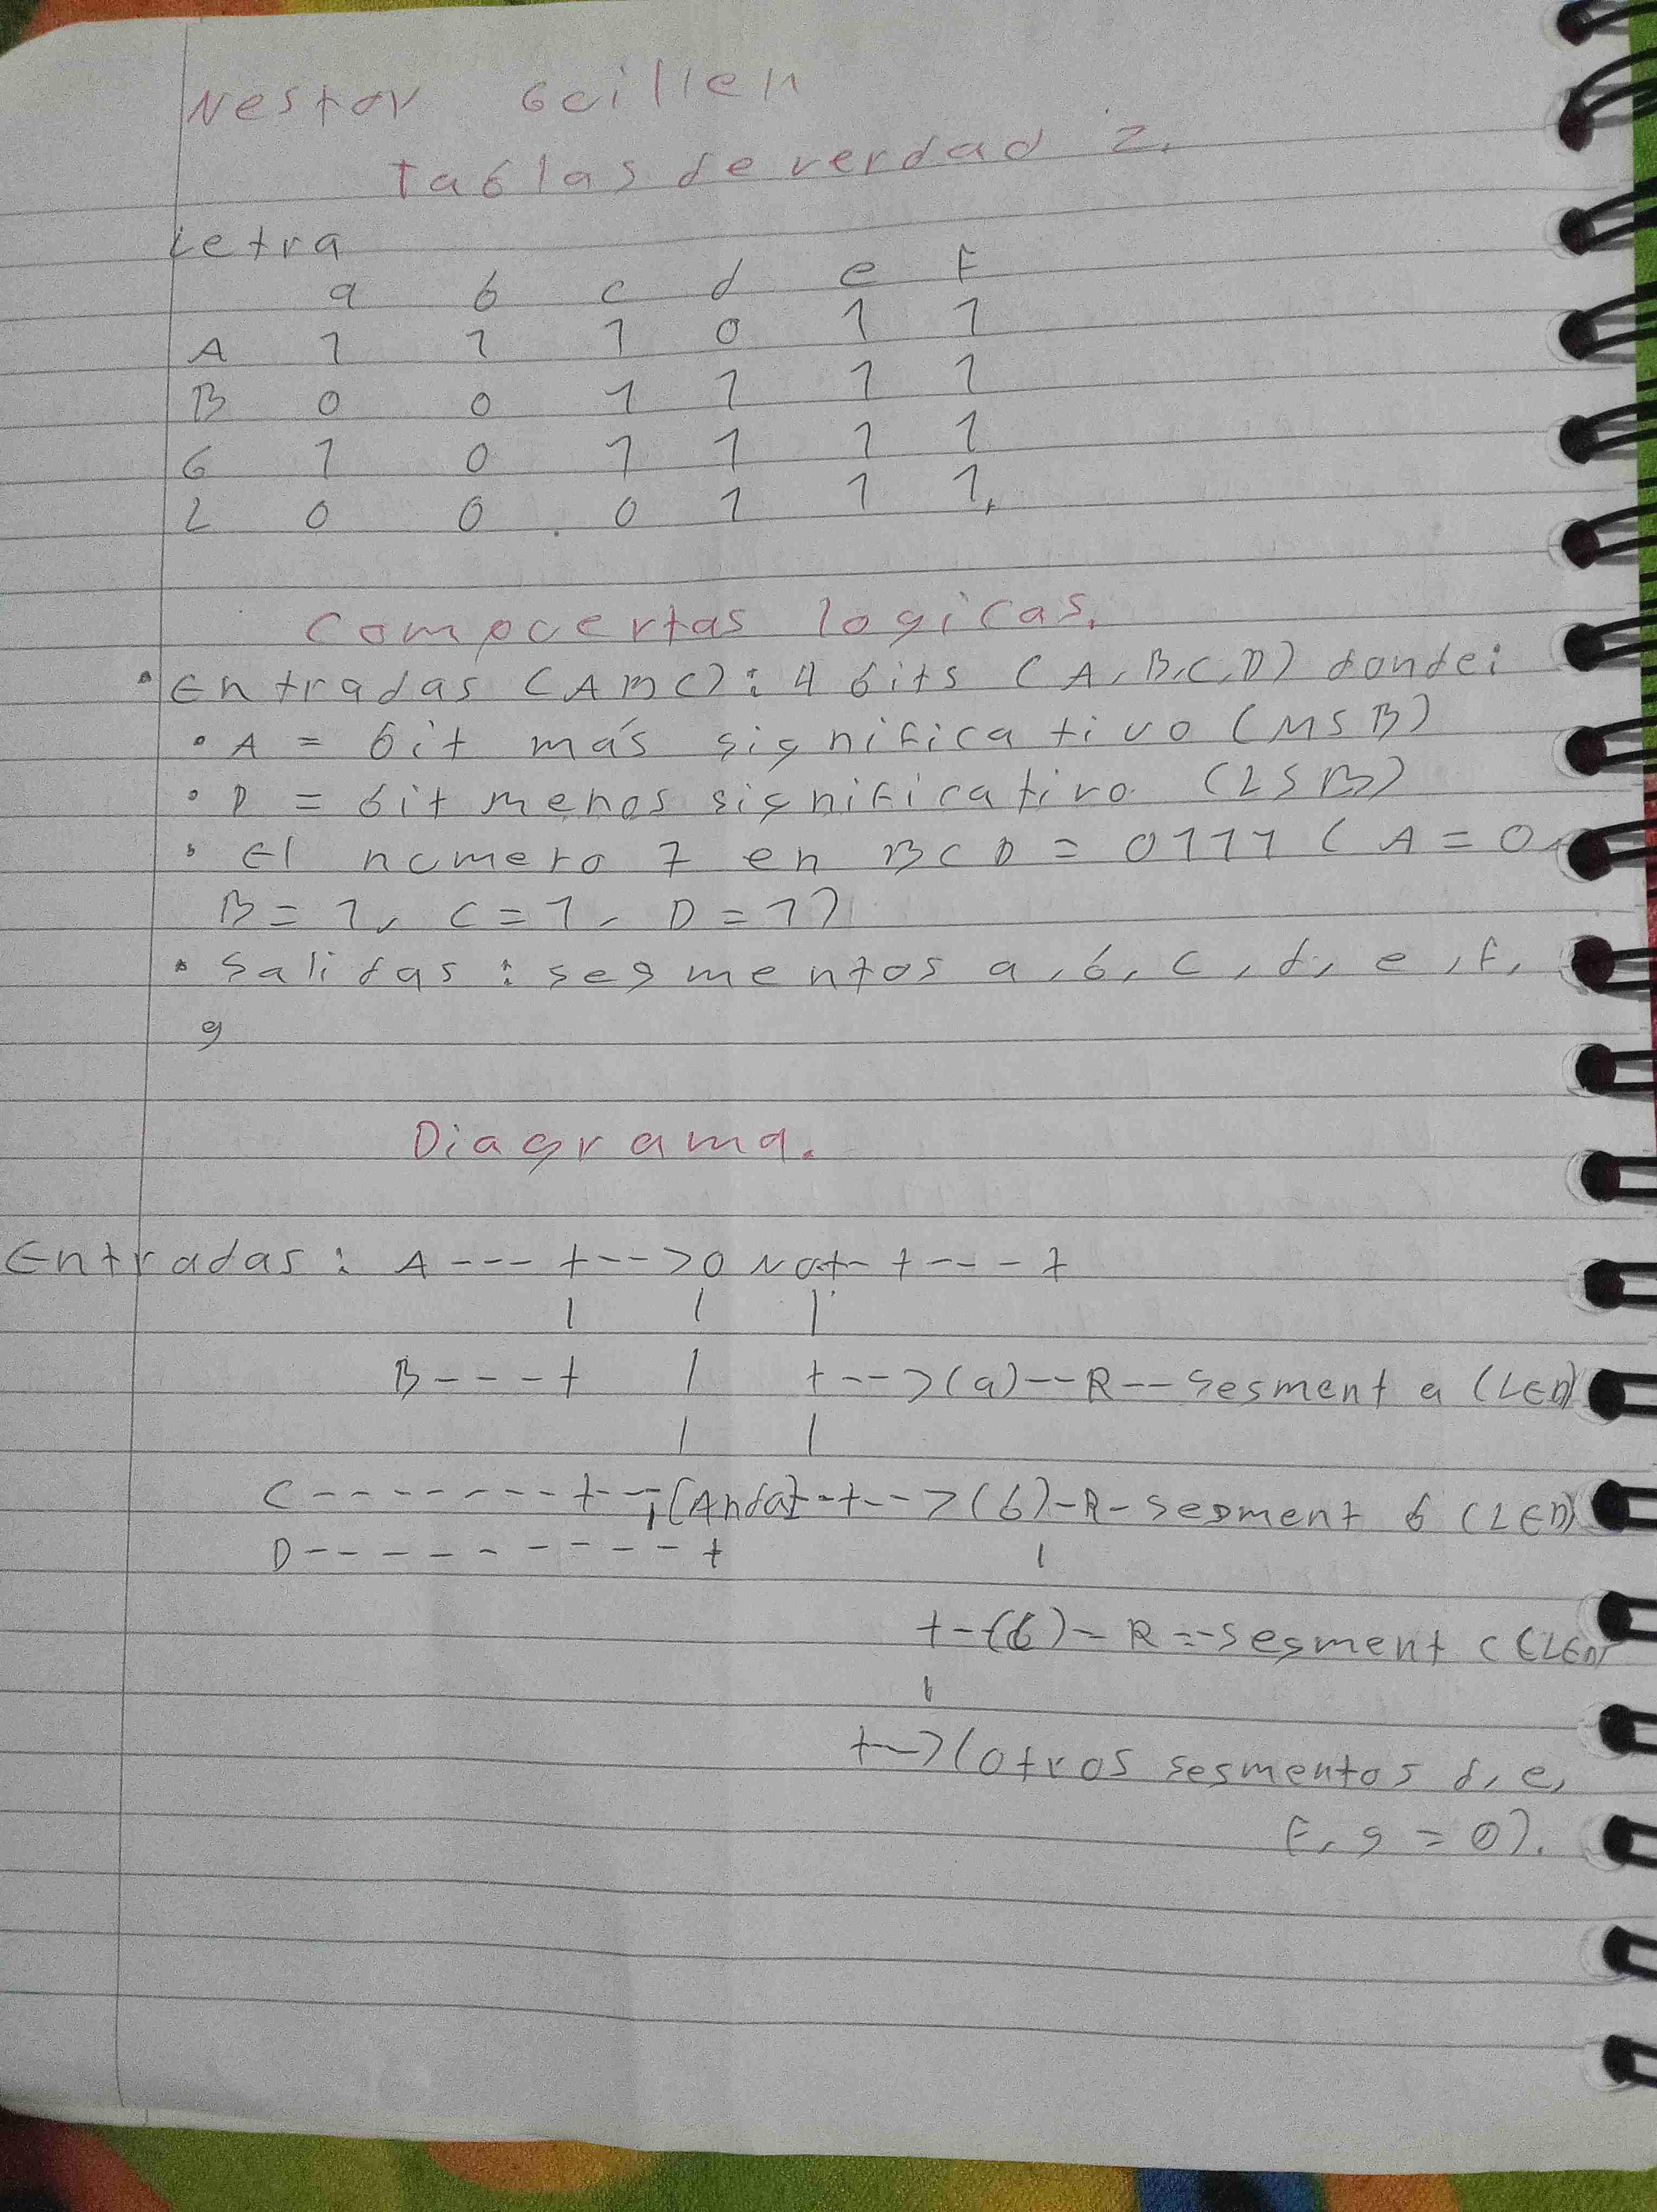 Nestor Gcillen
Tablas de verdad 2.
Letra
a b c d e F
A 1 1 1 0 1 1
B 0 0 1 1 1 1
G 1 0 1 1 1 1
L 0 0 0 1 1 1.
Compcertas logicas.
• Entradas (ABC): 4 bits (A, B, C, D) donde:
• A = bit más significativo (MSB)
• D = bit menos significativo (LSB)
• El numero 7 en BCD = 0111 (A = 0,
B = 1, C = 1, D = 1)
• Salidas: segmentos a, b, c, d, e, f,
g
Diagrama.
Entradas: A --- + --> O Not - + --- +
| | |
B --- + | + --> (a) -- R -- Segment a (LED)
| |
C -------- + -- [Anda] -- + --> (b) - R - Segment b (LED)
D ---------- + |
+ - (c) - R -- Segment c (LED
|
+ -> (otros segmentos d, e,
F, g = 0).